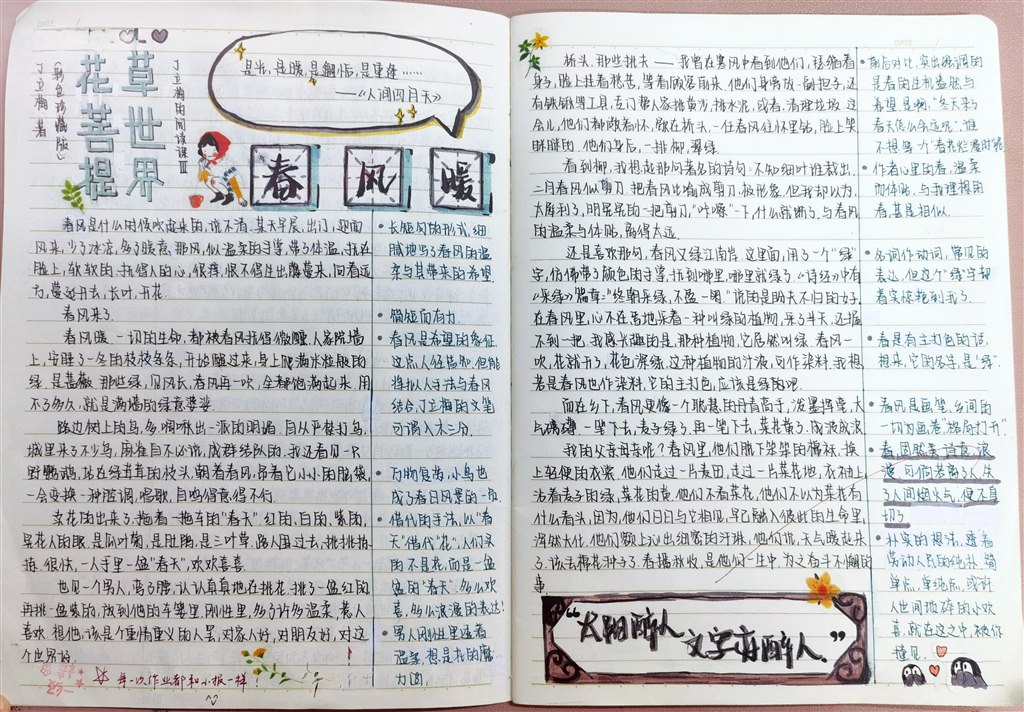 草世界
花菩提
丁立梅的阅读课Ⅲ
丁立梅 著
是光,是暖,是翩恬,是重逢……
——《人间四月天》
春风暖
春风是什么时候吹起来的,说不清.某天早晨,出门,迎面
风来,少了冰凉,多了暖意.那风,似温柔的手掌,带了体温,抚在
脸上,软软的.抚得人的心,很痒,恨不得生出藤蔓来,向着远
方,蔓延开去,长叶,开花.
春风来了.
春风暖.一切的生命,都被春风抚得微醺.人家院墙
上,安睡了一冬的枝枝条条,开始醒过来,身上爬满米粒般的
绿.是蔷薇.那些绿,见风长,春风再一吹,全都饱满起来.用
不了多久,就是满墙的绿意婆娑.
路边树上的鸟,多啁啾出一派的明媚.自从严禁打鸟,
城里来了不少鸟,麻雀自不必说,成群结队的.我还看见一只
野鹦鹉,站在绿茸茸的枝头,朝着春风,昂着它小小的脑袋,
一会变换一种腔调,唱歌.自鸣得意得不行.
卖花的出来了.拖着一拖车的“春天”.红的,白的,紫的,
晃花人的眼.是瓜叶菊,是杜鹃,是三叶草.路人围过去,挑挑拣
拣.很快,一人手里一盆“春天”,欢欢喜喜.
也见一个男人,弯了腰,认认真真地在挑花.挑了一盆红的,
再挑一盆紫的,放到他的车篓里.刚性里,多了许多温柔,惹人
喜欢.想他,该是个重情重义的人罢,对家人好,对朋友好,对这
个世界好.
长短句的形式,细
腻地写了春风的温
柔与其带来的希望.
简短而有力.
春风是希望的象征.
这点人人皆知,但能
将拟人手法与春风
结合,丁立梅的文笔
可谓入木三分.
万物复苏,小鸟也
成了春日风景的一员
借代的手法,以“春
天”借代“花”,人们买
的不是花,而是一盆
盆的“春天”.多么欢
喜,多么浪漫的表达!
男人刚性里透着
温柔,想是花的魔
力oo.
每一次作业都和小报一样!
桥头,那些挑夫——我曾在寒风中看到他们,瑟缩着
身子,脸上挂着愁苦,等着顾客前来.他们身旁放一副担子,还
有铁锹等工具,专门帮人家挑黄沙,挑水泥,或者,清理垃圾.这
会儿,他们都敞着怀,歇在桥头,一任春风往怀里钻,脸上笑
眯眯的.他们身后,一排柳,翠绿.
看到柳,我想起那句著名的诗句:不知细叶谁裁出,
二月春风似剪刀.把春风比喻成剪刀,极形象.但我却以为,
太犀利了,明晃晃的一把剪刀,“咔嚓”一下,什么就断了.与春风
的温柔与体贴,离得太远.
还是喜欢那句,春风又绿江南岸.这里面,用了一个“绿”
字,仿佛带了颜色的手掌,抚到哪里,哪里就绿了.《诗经》中有
《采绿》篇章:“终朝采绿,不盈一匊.”说的是盼夫不归的女子,
在春风里,心不在焉地采着一种叫绿的植物,采了半天,还握
不到一把.我感兴趣的是,那种植物,它居然叫绿.春风一
吹,花就开了,花色深绿.这种植物的汁液,可作染料.我想,
若是春风也作染料,它的主打色,应该是绿的吧.
而在乡下,春风更像一个聪慧的丹青高手,泼墨挥毫,大
气磅礴.一笔下去,麦子绿了.再一笔下去,菜花黄了.成波成浪.
我的父亲母亲呢?春风里,他们脱下笨笨的棉袄,换
上轻便的衣裳.他们走过一片麦田,走过一片菜花地,衣袖上
沾着麦子的绿,菜花的黄.他们不看菜花,他们不以为菜花有
什么看头,因为,他们日日与它相见,早已融入彼此的生命里.
浑然天化.他们额上沁出细密的汗珠,他们说,天气暖起来
了,该去棉花种子了.春播秋收,是他们一生中,为之奋斗不懈的
事.
“太阳醉人
文字亦醉人.”
前后对比,突出强调的
是春的生机盎然与
希望.是啊,“冬天来了,
春天怎么会远呢”.谁
不想等个“春花烂漫时”呢
作者心里的春,温柔
而体贴,与我理想的
春,甚是相似.
名词作动词,常见的
表达,但这个“绿”字却
着实惊艳到我了.
春是有主打色的话,
想来,它的名字,是“绿”.
春风是画笔,乡间的
一切为画卷,“格局打开”.
春固然美,诗意,浪
漫,可倘若离了人,失
了人间烟火气,便不真
切了
朴实的想法,透着
劳动人民的纯朴,简
单点,单纯点,或许
人世间琐碎的小欢
喜,就在这之中,被你
撞见.